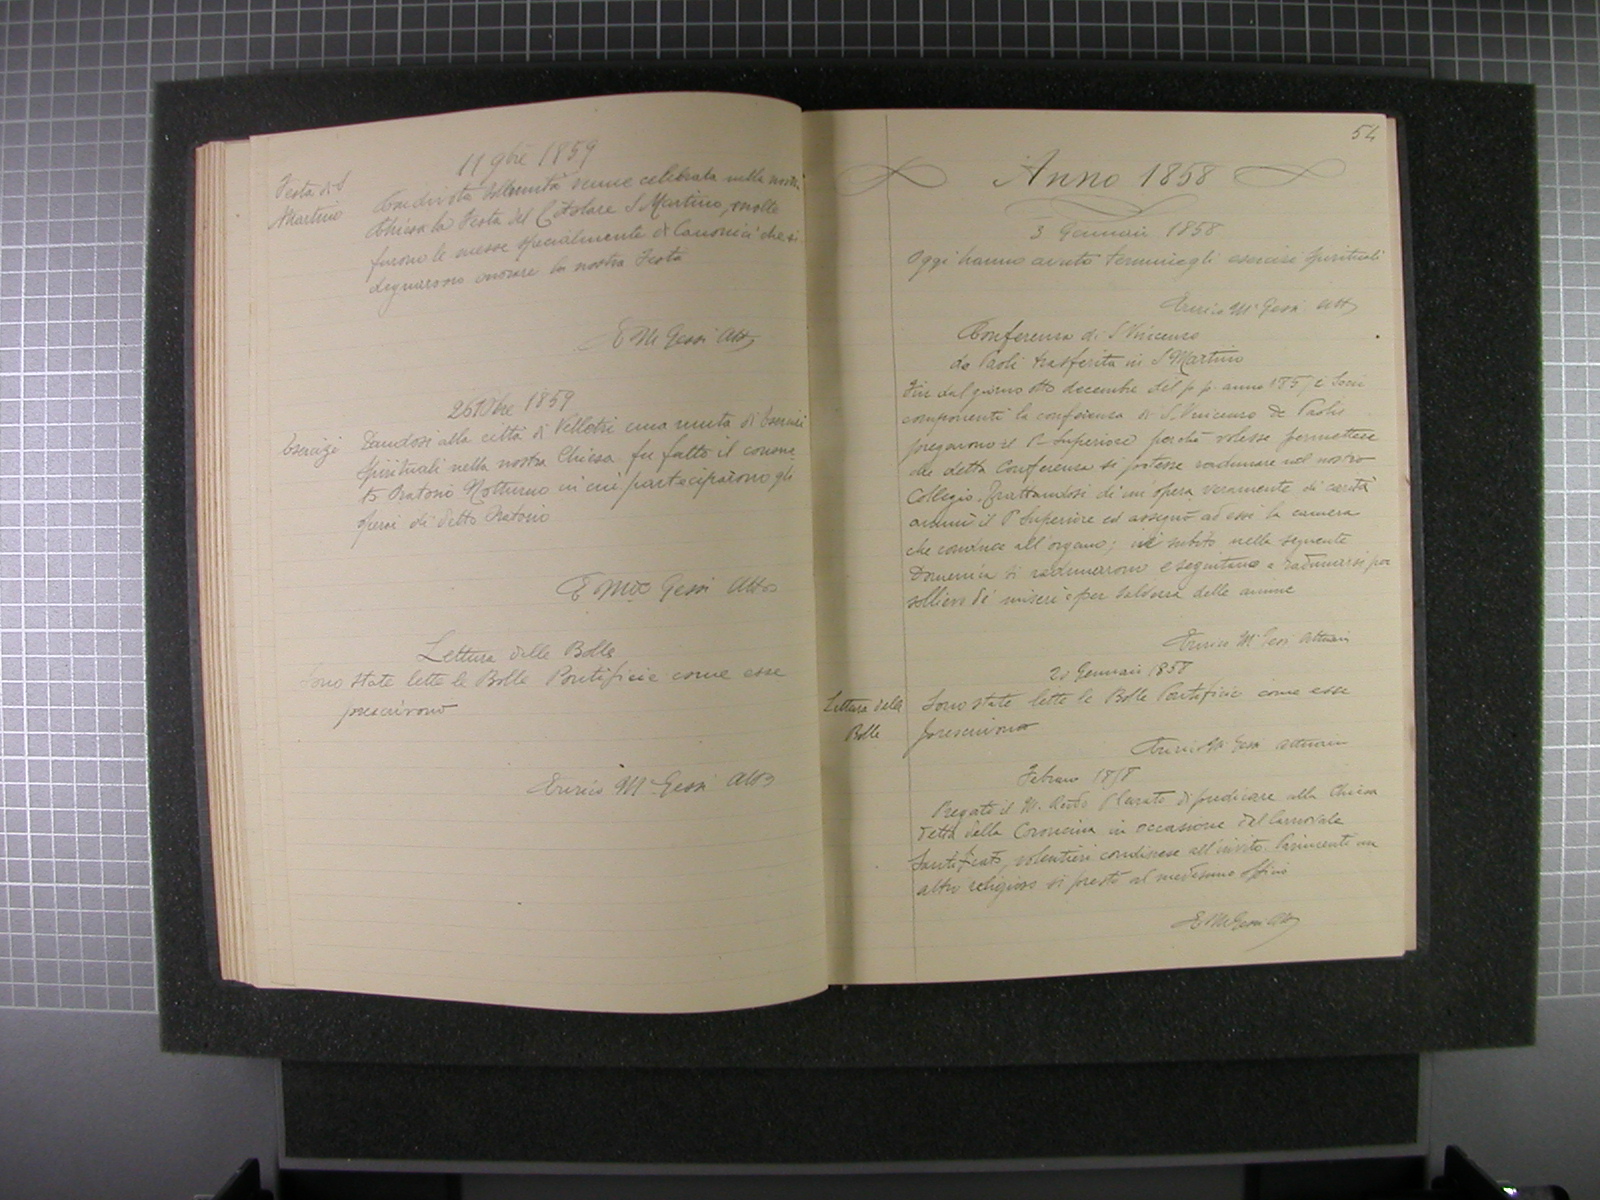 11 9bre 1859
Festa di S
Martino
Con divota sollennità venne celebrata nella nostra
Chiesa la Festa del Titolare S Martino, molte
furono le messe specialmente di Canonici che si
degnarono onorare la nostra Festa
E M Gessi Attº
26 Xbre 1859
Esercizi
Dandosi alla città di Velletri una muta di Esercizi
Spirituali nella nostra Chiesa fu fatto il conone
to Oratorio Notturno in cui parteciparono gli
operai di detto Oratorio
E Mª Gessi Attº
Lettura delle Bolle
Sono state lette le Bolle Pontificie come esse
prescrivono
Enrico Mª Gessi Attº
54
Anno 1858
3 Gennaio 1858
Oggi hanno avuto termine gli esercizi spirituali
Enrico Mª Gessi Attº
Conferenza di S Vincenzo
de Paoli trasferita in S Martino
Fin dal giorno otto decembre del p. p. anno 1857 i Socii
componenti la conferenza di S. Vincenzo de Paolis
pregarono il P. Superiore perchè volesse permettere
che detta Conferenza si potesse radunare nel nostro
Collegio. Trattandosi di un' opera veramente di carità
annuì il P Superiore ed assegnò ad essi la camera
che conduce all'organo; subito nella seguente
Domenica si radunarono e seguitano a radunarsi per
sollievo de' miseri e per salvezza delle anime
Enrico Mª Gessi Attuario
20 Gennaio 1858
Lettura delle
Bolle
Sono state lette le Bolle Pontificie come esse
prescrivono
Enrico Mª Gessi Attuario
Febraro 1858
Pregato il M. Rdo P Curato di predicare alla Chiesa
detta della Coroncina in occasione del Carnovale
Santificato, volentieri condiscese all'invito. Parimenti un
altro religioso si prestò al medesimo officio
E M Gessi Attº